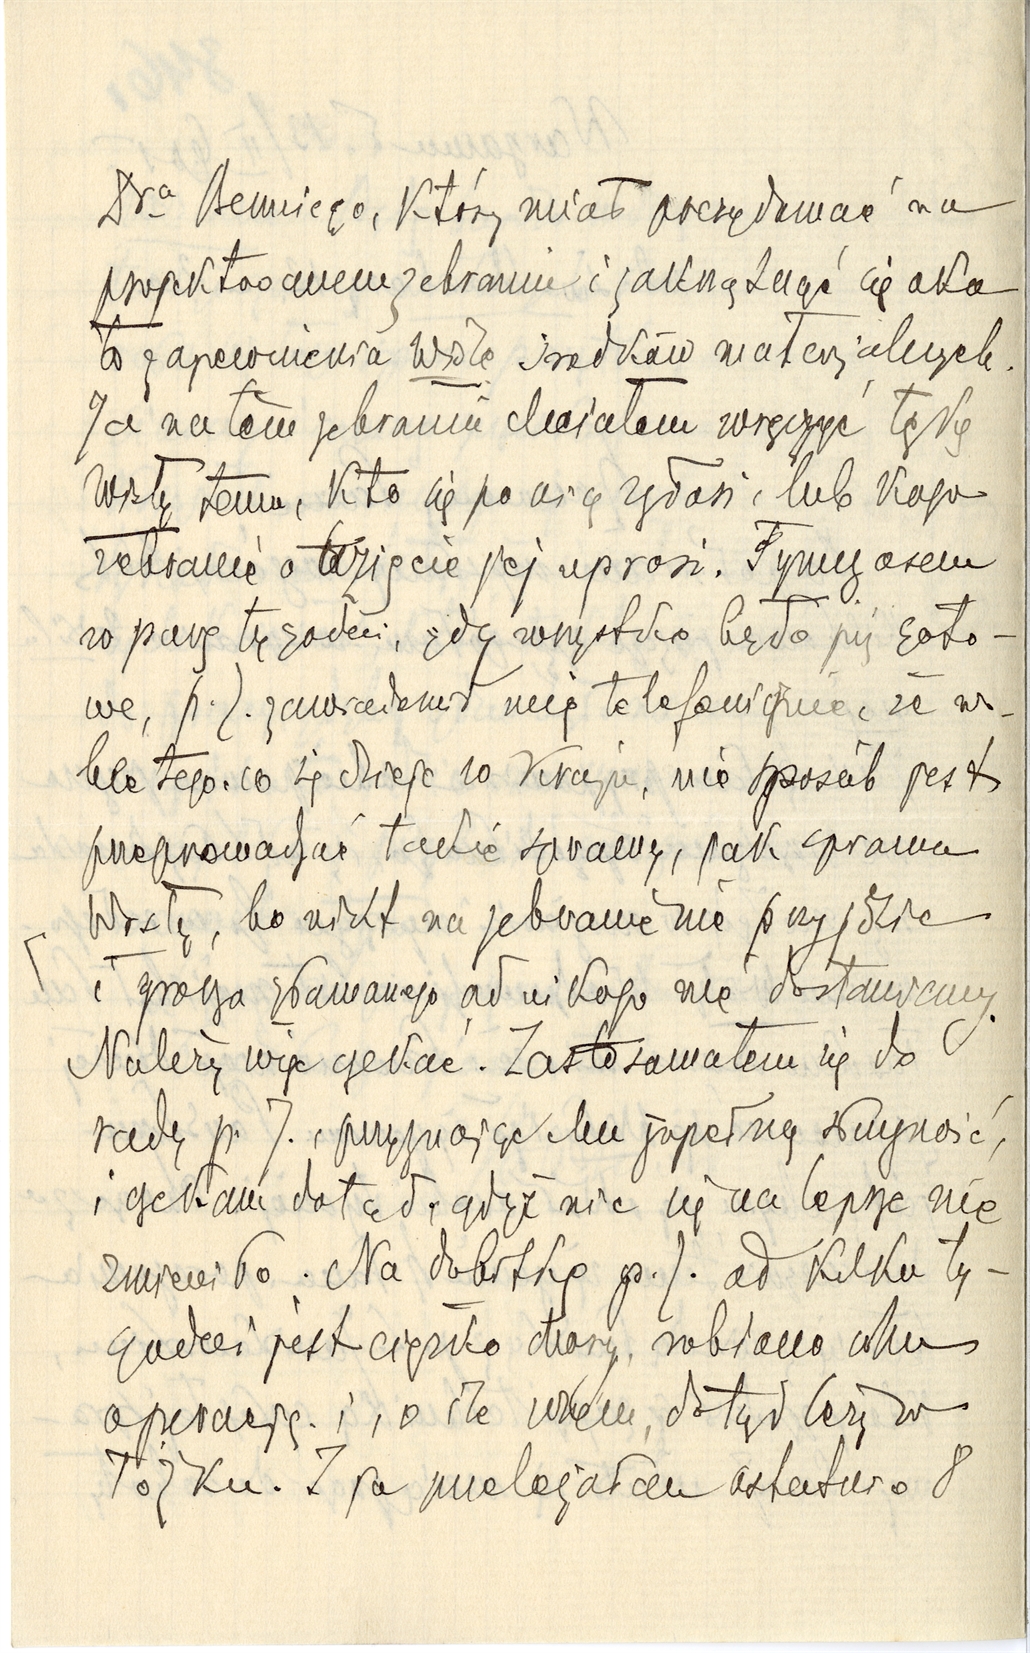 Dra Benniego, który miał prezydować na
projektowanem zebraniu i zakrzątnąć się oko
ło zapewnienia Wiśle środków materjalnych.
Ja na tem zebraniu chciałem wręczyć tekę
Wisły temu, kto się po nią zgłosi, lub kogo
zebranie o wzięcie jej uprosi. Tymczasem
w parę tygodni, gdy wszystko było już goto-
we, p. J. zawiadomił mię telefonicznie, że wo-
bec tego, co się dzieje w kraju, nie sposób jest
przeprowadzać takie sprawy, jak sprawa
Wisły, bo nikt na zebranie nie przyjdzie
i grosza złamanego od nikogo nie dostaniemy.
Należy więc czekać. Zastosowałem się do
rady p. J., przyznając mu zupełną słuszność,
i czekam dotąd, gdyż nic się na lepsze nie
zmieniło. Na dobitkę p. J. od kilku ty-
godni jest ciężko chory, robiono mu
operację i, o ile wiem, dotąd leży w
łóżku. I ja przeleżałem ostatnio 8